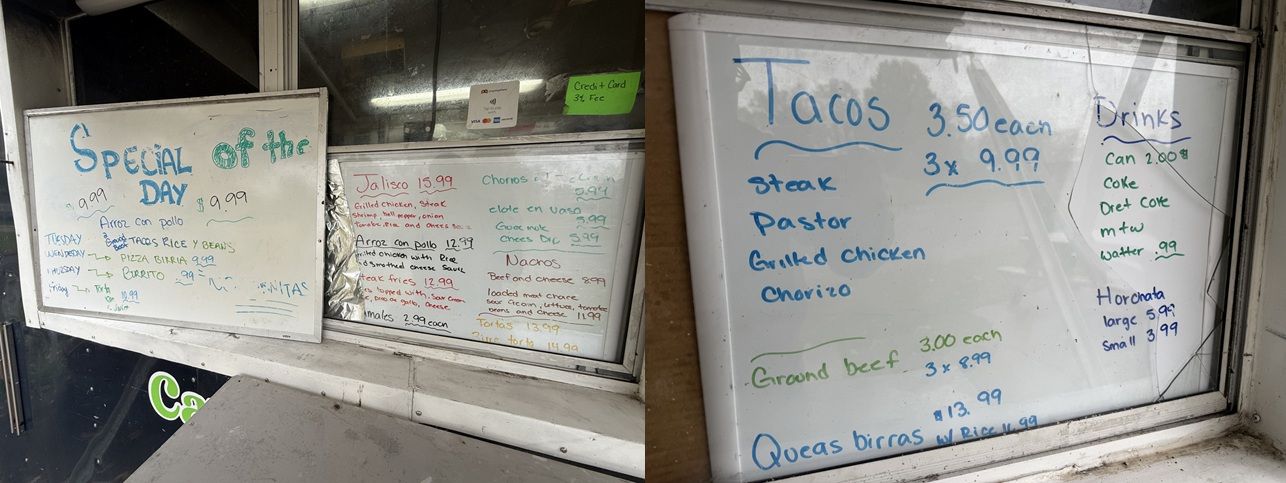 SPECIAL of the
DAY
9.99 $9.99
Arroz con pollo
TUESDAY Ground Beef TACOS RICE Y BEANS
WENDESDAY PIZZA BIRRIA 9.99
THURSDAY BURRITO
Friday
10.99
Credit Card
3% Fee
VISA
Jalisco 15.99
Grilled chicken, Steak
shrimp, bell pepper, onion
Arroz con pollo 12.99
grilled chicken with Rice
and smothed cheese sauce
Steak fries 12.99
topped with sour cream
pico de gallo, cheese
2.99 each
Churros
5.99
elote en vaso
5.99
Cheese Dip 5.99
Nachos
Beef and cheese 8.99
loaded meat choice
Sour cream, lettuce, tomatoe
beans and cheese 11.99
Tortas 13.99
torta 14.99
Ca
Tacos 3.50 each
3x 9.99
Steak
Pastor
Grilled chicken
Chorizo
Ground beef 3.00 each
3x 8.99
Queas birras $13.99
w/ Rice
Drinks
Can 2.00$
Coke
Diet Coke
mtw
watter .99
Horchata
large 5.99
small 3.99